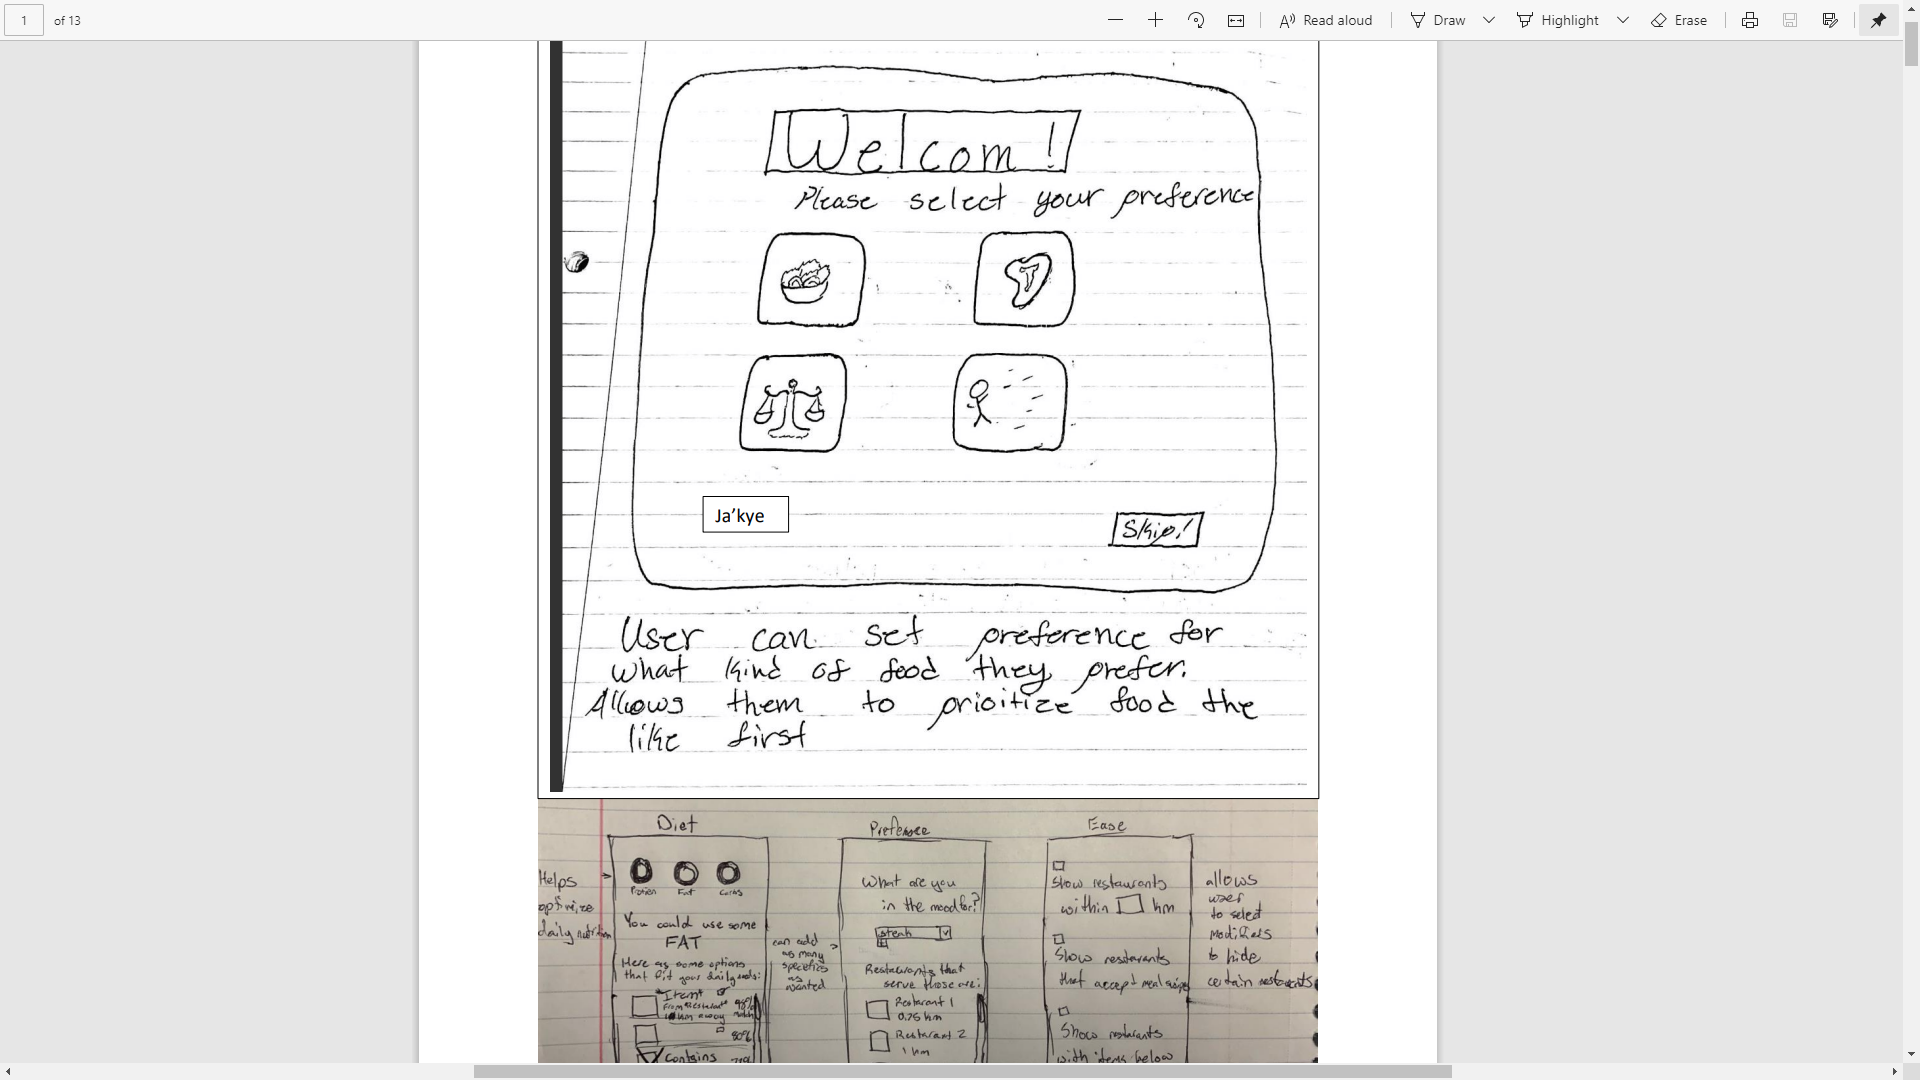 1 of 13
Read aloud
Draw
Highlight
Erase
Welcom!
Please select your preference
Ja'kye
Skip!
User can set preference for
what kind of food they prefer.
Allows them to prioitize food the
like first
Diet
Helps
optimize
daily nutrition
Protien Fat Carbs
You could use some
FAT
Here as some options
that fit your daily needs:
Item
from Restaurant
km away
match
80%
Contains
can add
as many
specifics
as
wanted
Prefernce
What are you
in the mood for?
steak
Restaurants that
serve those are:
Restarant 1
0.75 km
Restarant 2
1 km
Ease
Show restaurants
within km
Show restarants
that accept meal swipes
Show restarants
with items below
allows
user
to select
modifiers
to hide
certain restarants